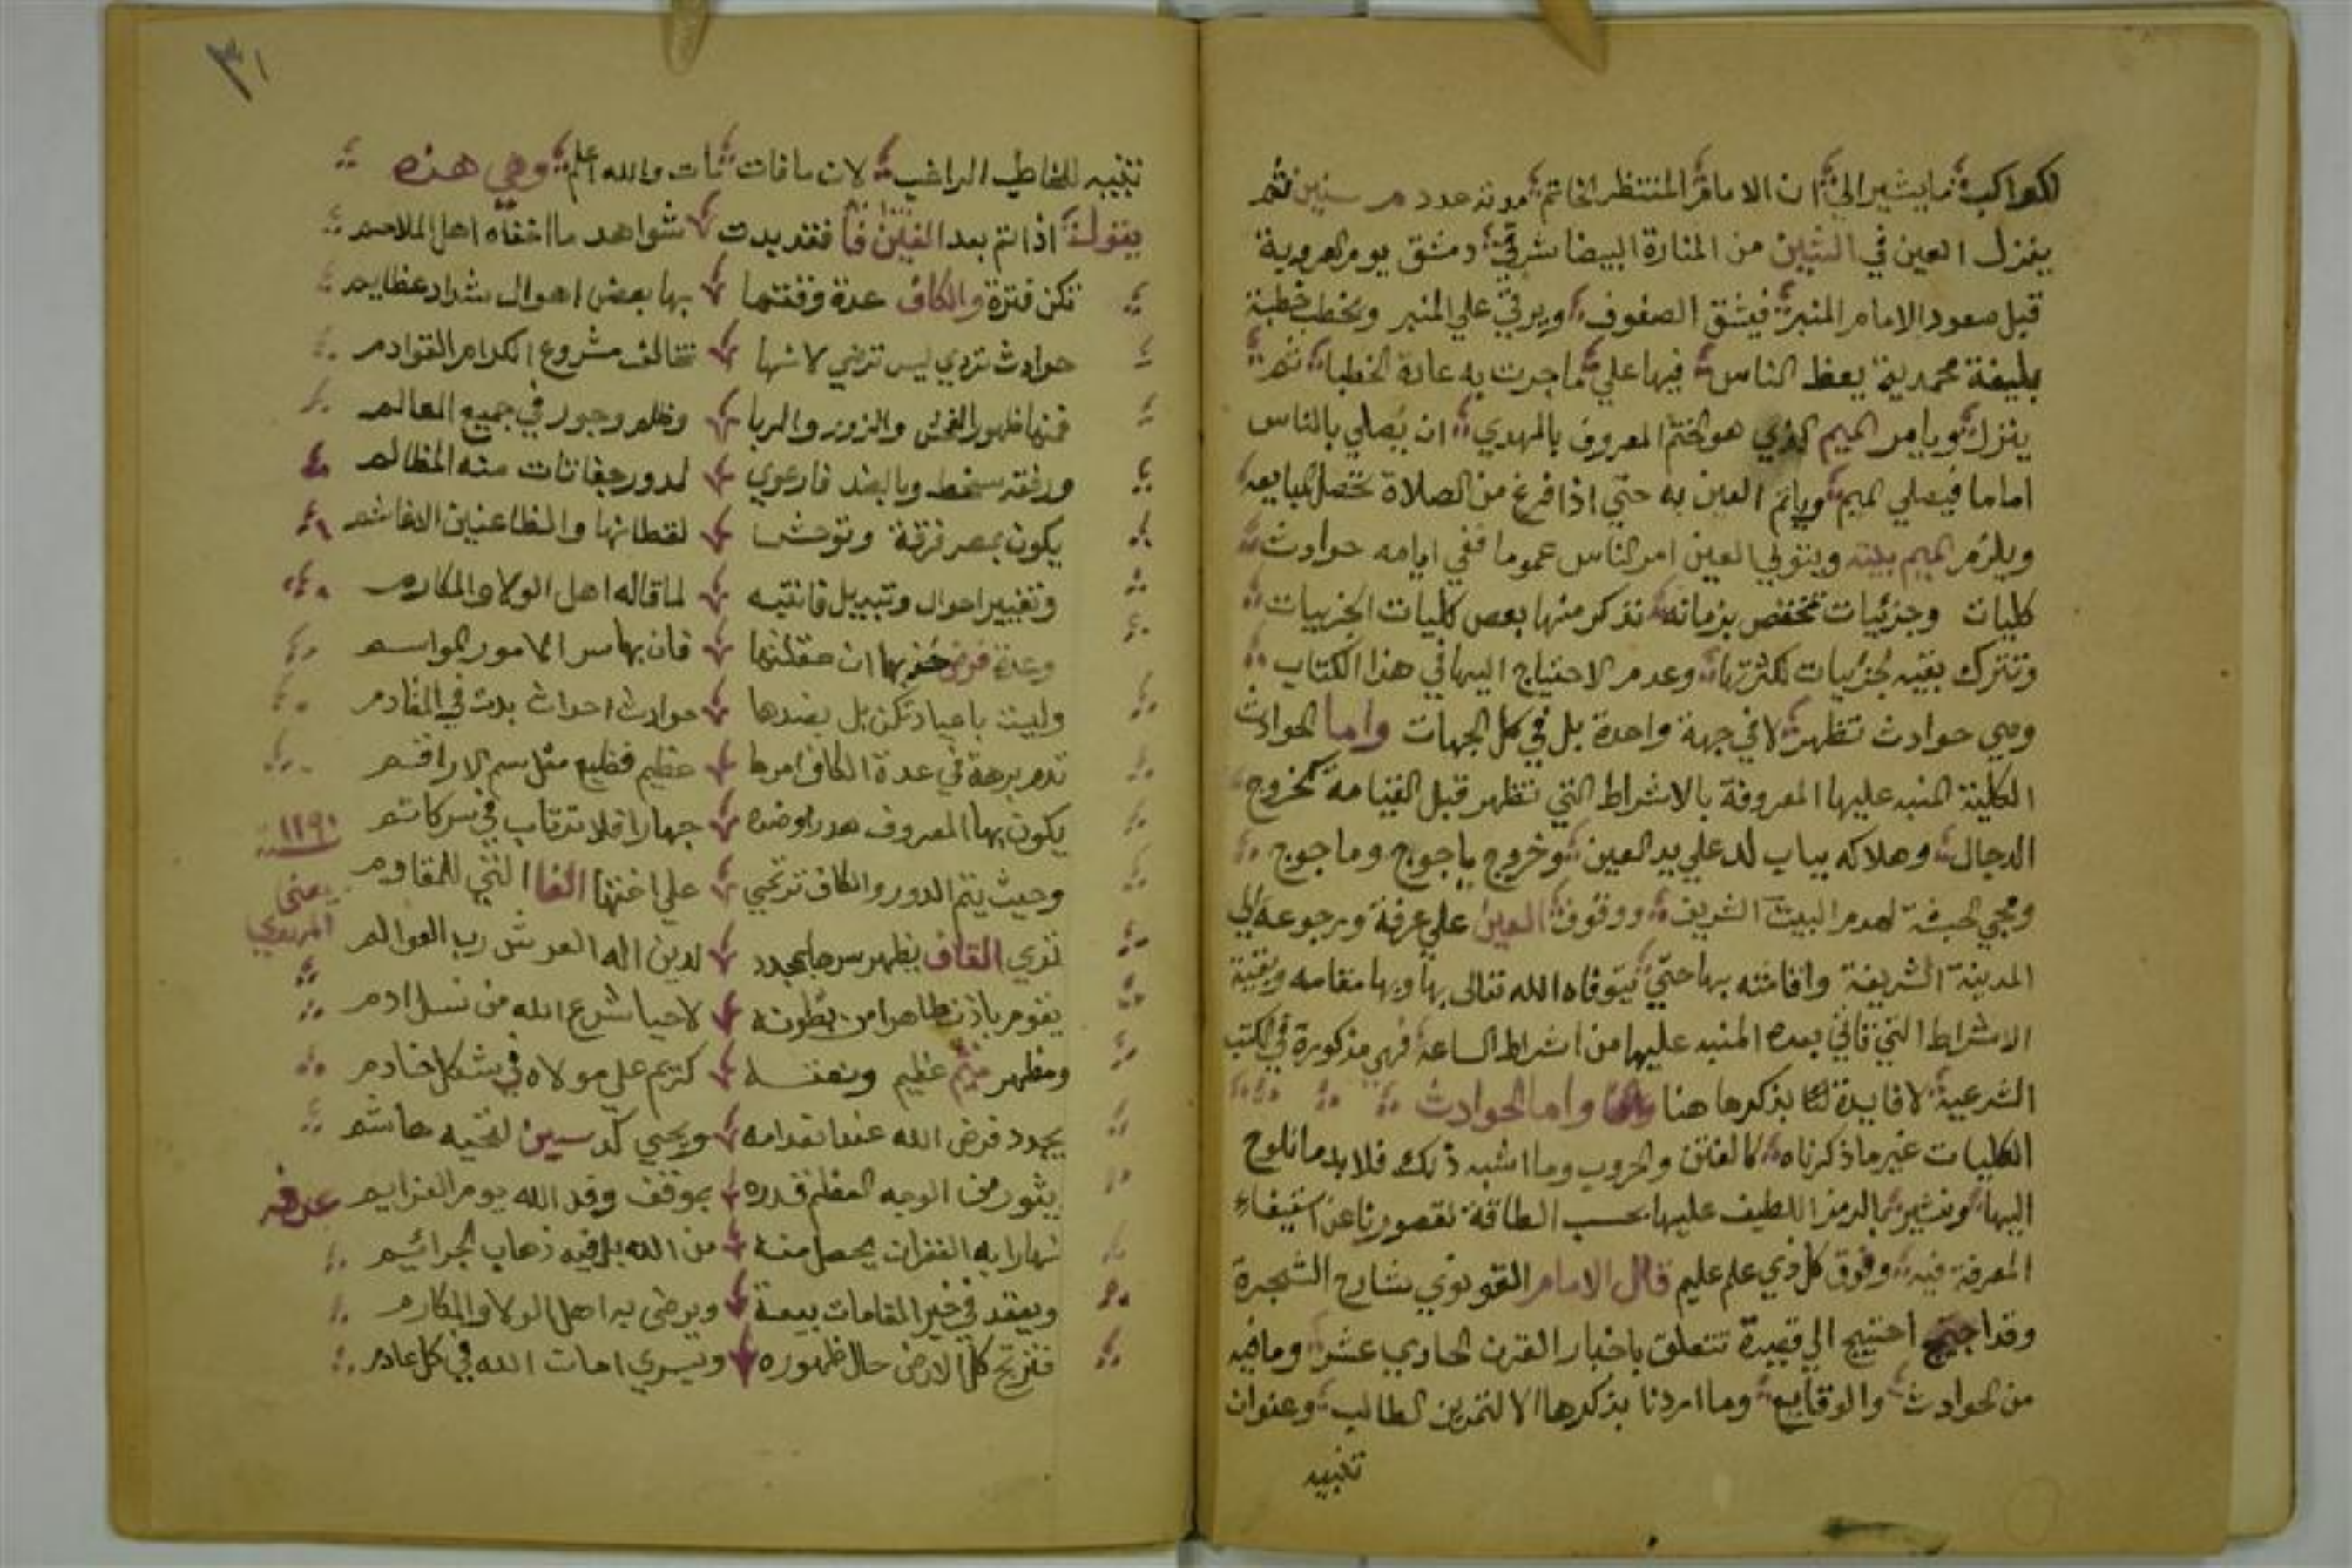 الكواكب ما يشير الي ان الامام المنتظر الخاتم مدته عدد م سنين ثم
ينزل العين في الشين من المنارة البيضا شرقي دمشق يوم العروبة
قبل صعود الامام المنبر فيشق الصفوف ويرقي علي المنبر ويخطب خطبة
بليغة محمدية يعظ الناس فيها علي ما جرت به عادة الخطبا ثم
ينزل ويامر الميم الذي هو الختم المعروف بالمهدي ان يصلي بالناس
اماما فيصلي الميم وياتم العين به حتي اذا فرغ من الصلاة تحصل المبايعه
ويلزم الميم بيته ويتولي العين امر الناس عموما ففي ايامه حوادث
كليات وجزئيات تختص بزمانه نذكر منها بعض كليات الجزييات
ونترك بقيه الجزييات لكثرتها وعدم الاحتياج اليها في هذا الكتاب
وهي حوادث تظهر لا في جهة واحدة بل في كل الجهات واما الحوادث
الكلية المنبه عليها المعروفة بالاشراط التي تظهر قبل القيامة كخروج
الدجال وهلاكه بباب لد علي يد العين وخروج ياجوج وماجوج
ومجي الحبشة لهدم البيت الشريف ووقوف العين علي عرفة ورجوعه الي
المدينة الشريفة واقامته بها حتي يتوفاه الله تعالى بها وبها مقامه وبقية
الاشراط التي تاتي بعده المنبه عليها من اشراط الساعة فهي مذكورة في الكتب
الشرعية لا فايدة لنا بذكرها هنا واما الحوادث
الكليات غير ما ذكرناه كالفتن والحروب وما اشبه ذلك فلا بد ما نلوح
اليها ونشير بالرمز اللطيف عليها بحسب الطاقة لقصورنا عن استيفاء
المعرفة فيه وفوق كل ذي علم عليم قال الامام القونوي شارح الشجرة
وقد احتيج الي قصيدة تتعلق باخبار القرن الحادي عشر وما فيه
من الحوادث والوقايع وما اردنا بذكرها الا لتمرين الطالب وعنوان
تنبيه
٣١
تنبيه للخاطب الراغب لان ما فات مات والله اعلم وهي هذه
يقول اذا تم بعد الغين فا فقد بدت شواهد ما اخفاه اهل الملاحم
تكن فترة والكاف عدة وقفتها بها بعض اهوال شداد عظايم
حوادث تردي ليس ترضي لانها تخالف مشروع الكرام القوادم
فمنها ظهور الفحش والزور والربا وظلم وجور في جميع العالم
ورفقه سخط وبالضد فارعوي لدور منه المظالم
يكون بمصر فرقة وتوحش لقطانها والظاعنين الاغاشم
وتغيير احوال وتبديل فانتبه لما قاله اهل الولا والمكارم
وعدة فرض خذ بها ان عقلتها فان بها سر الامور المواسم
وليت باعياد تكن بل بضدها حوادث احداث بدت في المقادم
تدم برهة في عدة الكاف امرها عظيم فظيع مثل سم الاراقم
يكون بها المعروف هدرا وضده جهارا فلا ترتاب في سر كاتم
سنة ١١٩٠
وحيث يتم الدور والكاف ترتجي علي اختها الفا التي للمقاوم
يعني
المهدي
تري القاف يظهر سرها بمجدد لدين اله العرش رب العوالم
يقوم باذن ظاهرا من بطونة لاحيا شرع الله من نسل ادم
ومظهر عظيم ونفسه كريم علي مولاه في شكل خادم
يجدد فرض الله عند انعدامه ويحيي كل سين لنخبه هاشم
يثور من الوجه المعظم قدره بموقف وفد الله يوم العزايم
عرفه
نهارا به الغفران يحصل منة من الله بل فيه ذهاب الجرائم
ويعقد في خير المقامات بيعة ويرضى به اهل الولا والمكارم
فترتج كل الارض حال ظهوره ويسري امات الله في كل عادم